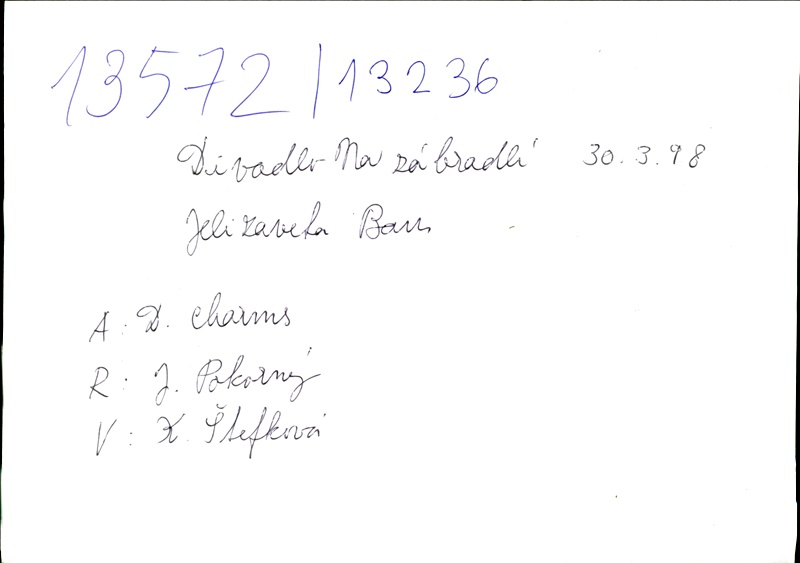 13572/13236
Divadlo Na zábradlí 30.3.98
Jelizaveta Bam
A: D. Charms
R: J. Pokorný
V: K. Štefková